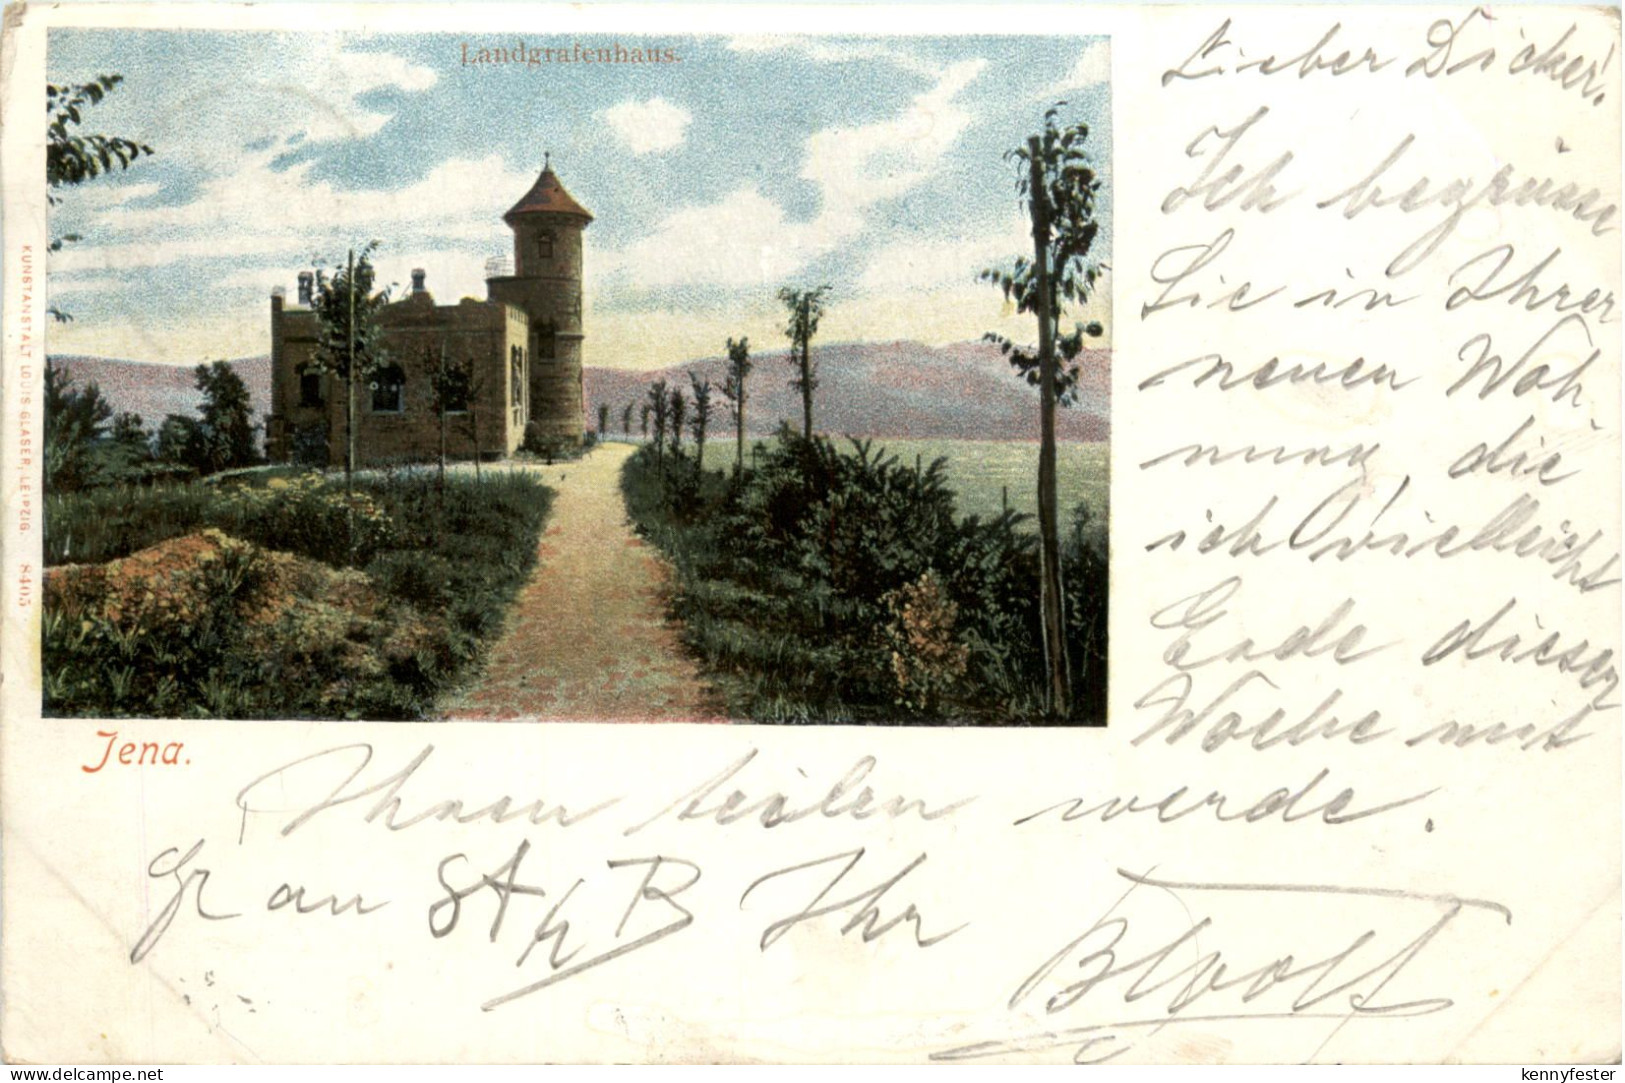 Landgrafenhaus.
KUNSTANSTALT LOUIS GLASER, LEIPZIG. 8405
Jena.
Lieber Dicker!
Ich begrüsse
Sie in Ihrer
neuen Woh-
nung, die
ich vielleicht
Ende dieser
Woche mit
Ihnen teilen werde.
Gr an St Ihr
www.delcampe.net
kennyfester